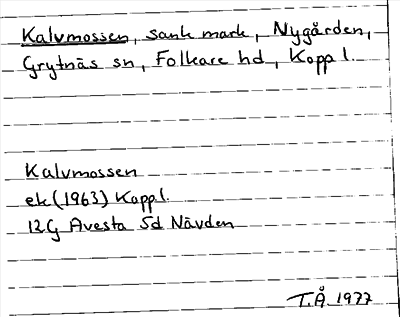 Kalvmossen, sank mark, Nygården,
Grytnäs sn, Folkare hd, Kopp l.
Kalvmossen
ek (1963) Kopp l.
12G Avesta 5d Nävden
T.Å 1977